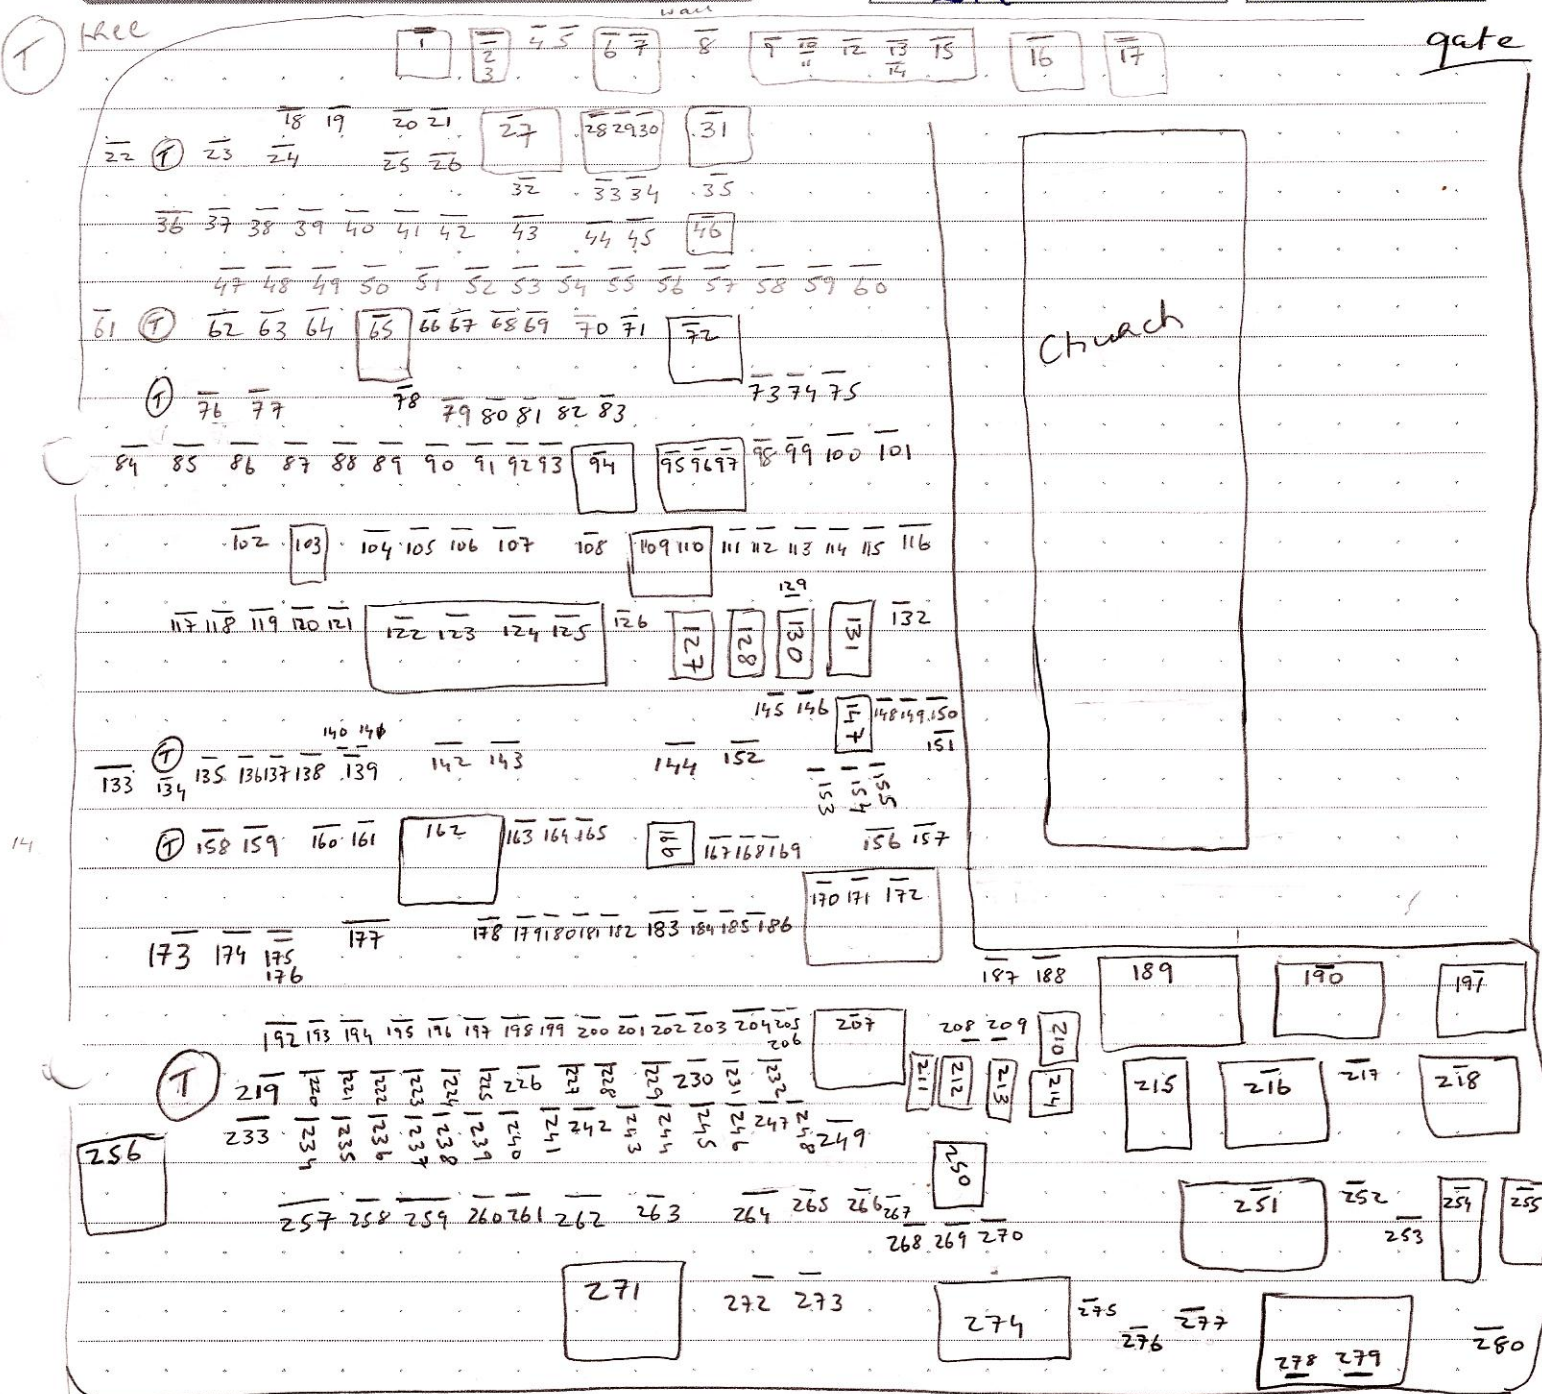 wall
T tree
1 2 4 5 6 7 8 9 10 12 13 15 16 17 gate
3 11 14
18 19 20 21 27 28 29 30 31
22 T 23 24 25 26
32 33 34 35
36 37 38 39 40 41 42 43 44 45 46
47 48 49 50 51 52 53 54 55 56 57 58 59 60
61 T 62 63 64 65 66 67 68 69 70 71 72
Church
73 74 75
T 76 77 78 79 80 81 82 83
84 85 86 87 88 89 90 91 92 93 94 95 96 97 98 99 100 101
102 103 104 105 106 107 108 109 110 111 112 113 114 115 116
129
117 118 119 120 121 122 123 124 125 126 127 128 130 131 132
145 146 147 148 149 150
140 141 151
133 T 134 135 136 137 138 139 142 143 144 152
153 154 155
14 T 158 159 160 161 162 163 164 165 166 167 168 169 156 157
170 171 172
173 174 175 177 178 179 180 181 182 183 184 185 186
176
187 188 189 190 191
192 193 194 195 196 197 198 199 200 201 202 203 204 205 207 208 209 210
206
T 219 220 221 222 223 224 225 226 227 228 229 230 231 232 211 212 213 214 215 216 217 218
233 234 235 236 237 238 239 240 241 242 243 244 245 246 247 248 249
256 250
257 258 259 260 261 262 263 264 265 266 267 251 252 254 255
268 269 270 253
271 272 273 274 275 277
276 278 279 280